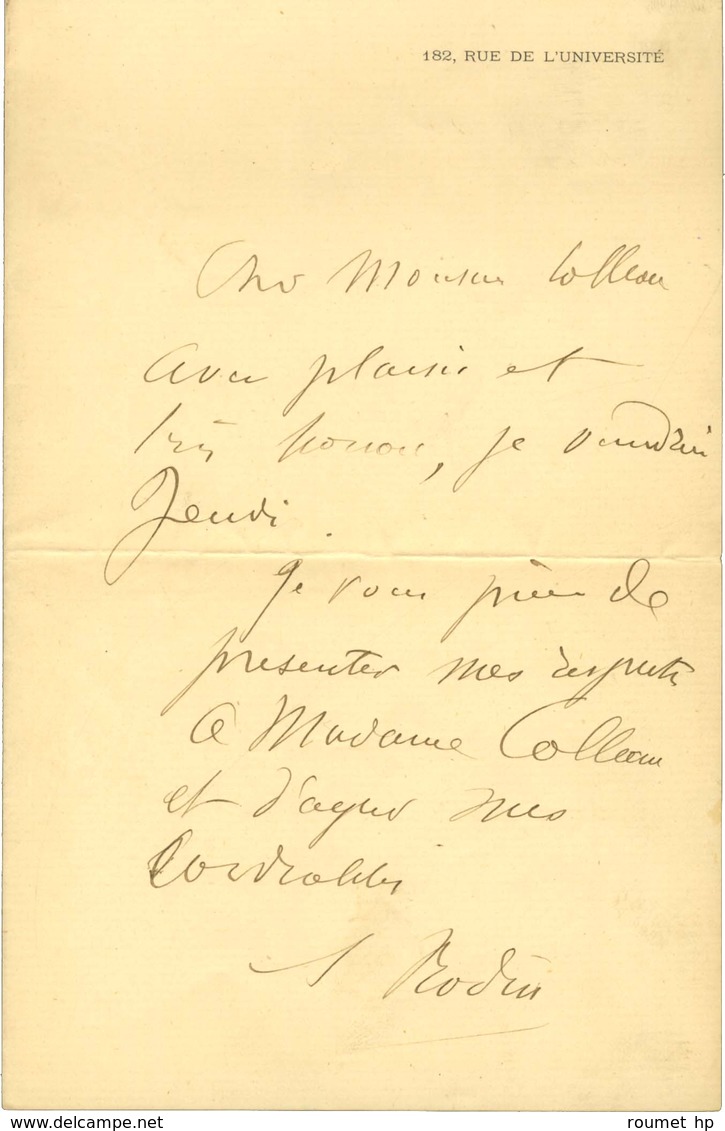 182, RUE DE L'UNIVERSITÉ
Cher Monsieur Colleau
avec plaisir et
très honoré, je viendrai
Jeudi.
Je vous prie de
presenter mes respects
à Madame Colleau
et d'agréer mes
Cordialités
A Rodin
delcampe.net
roumet hp